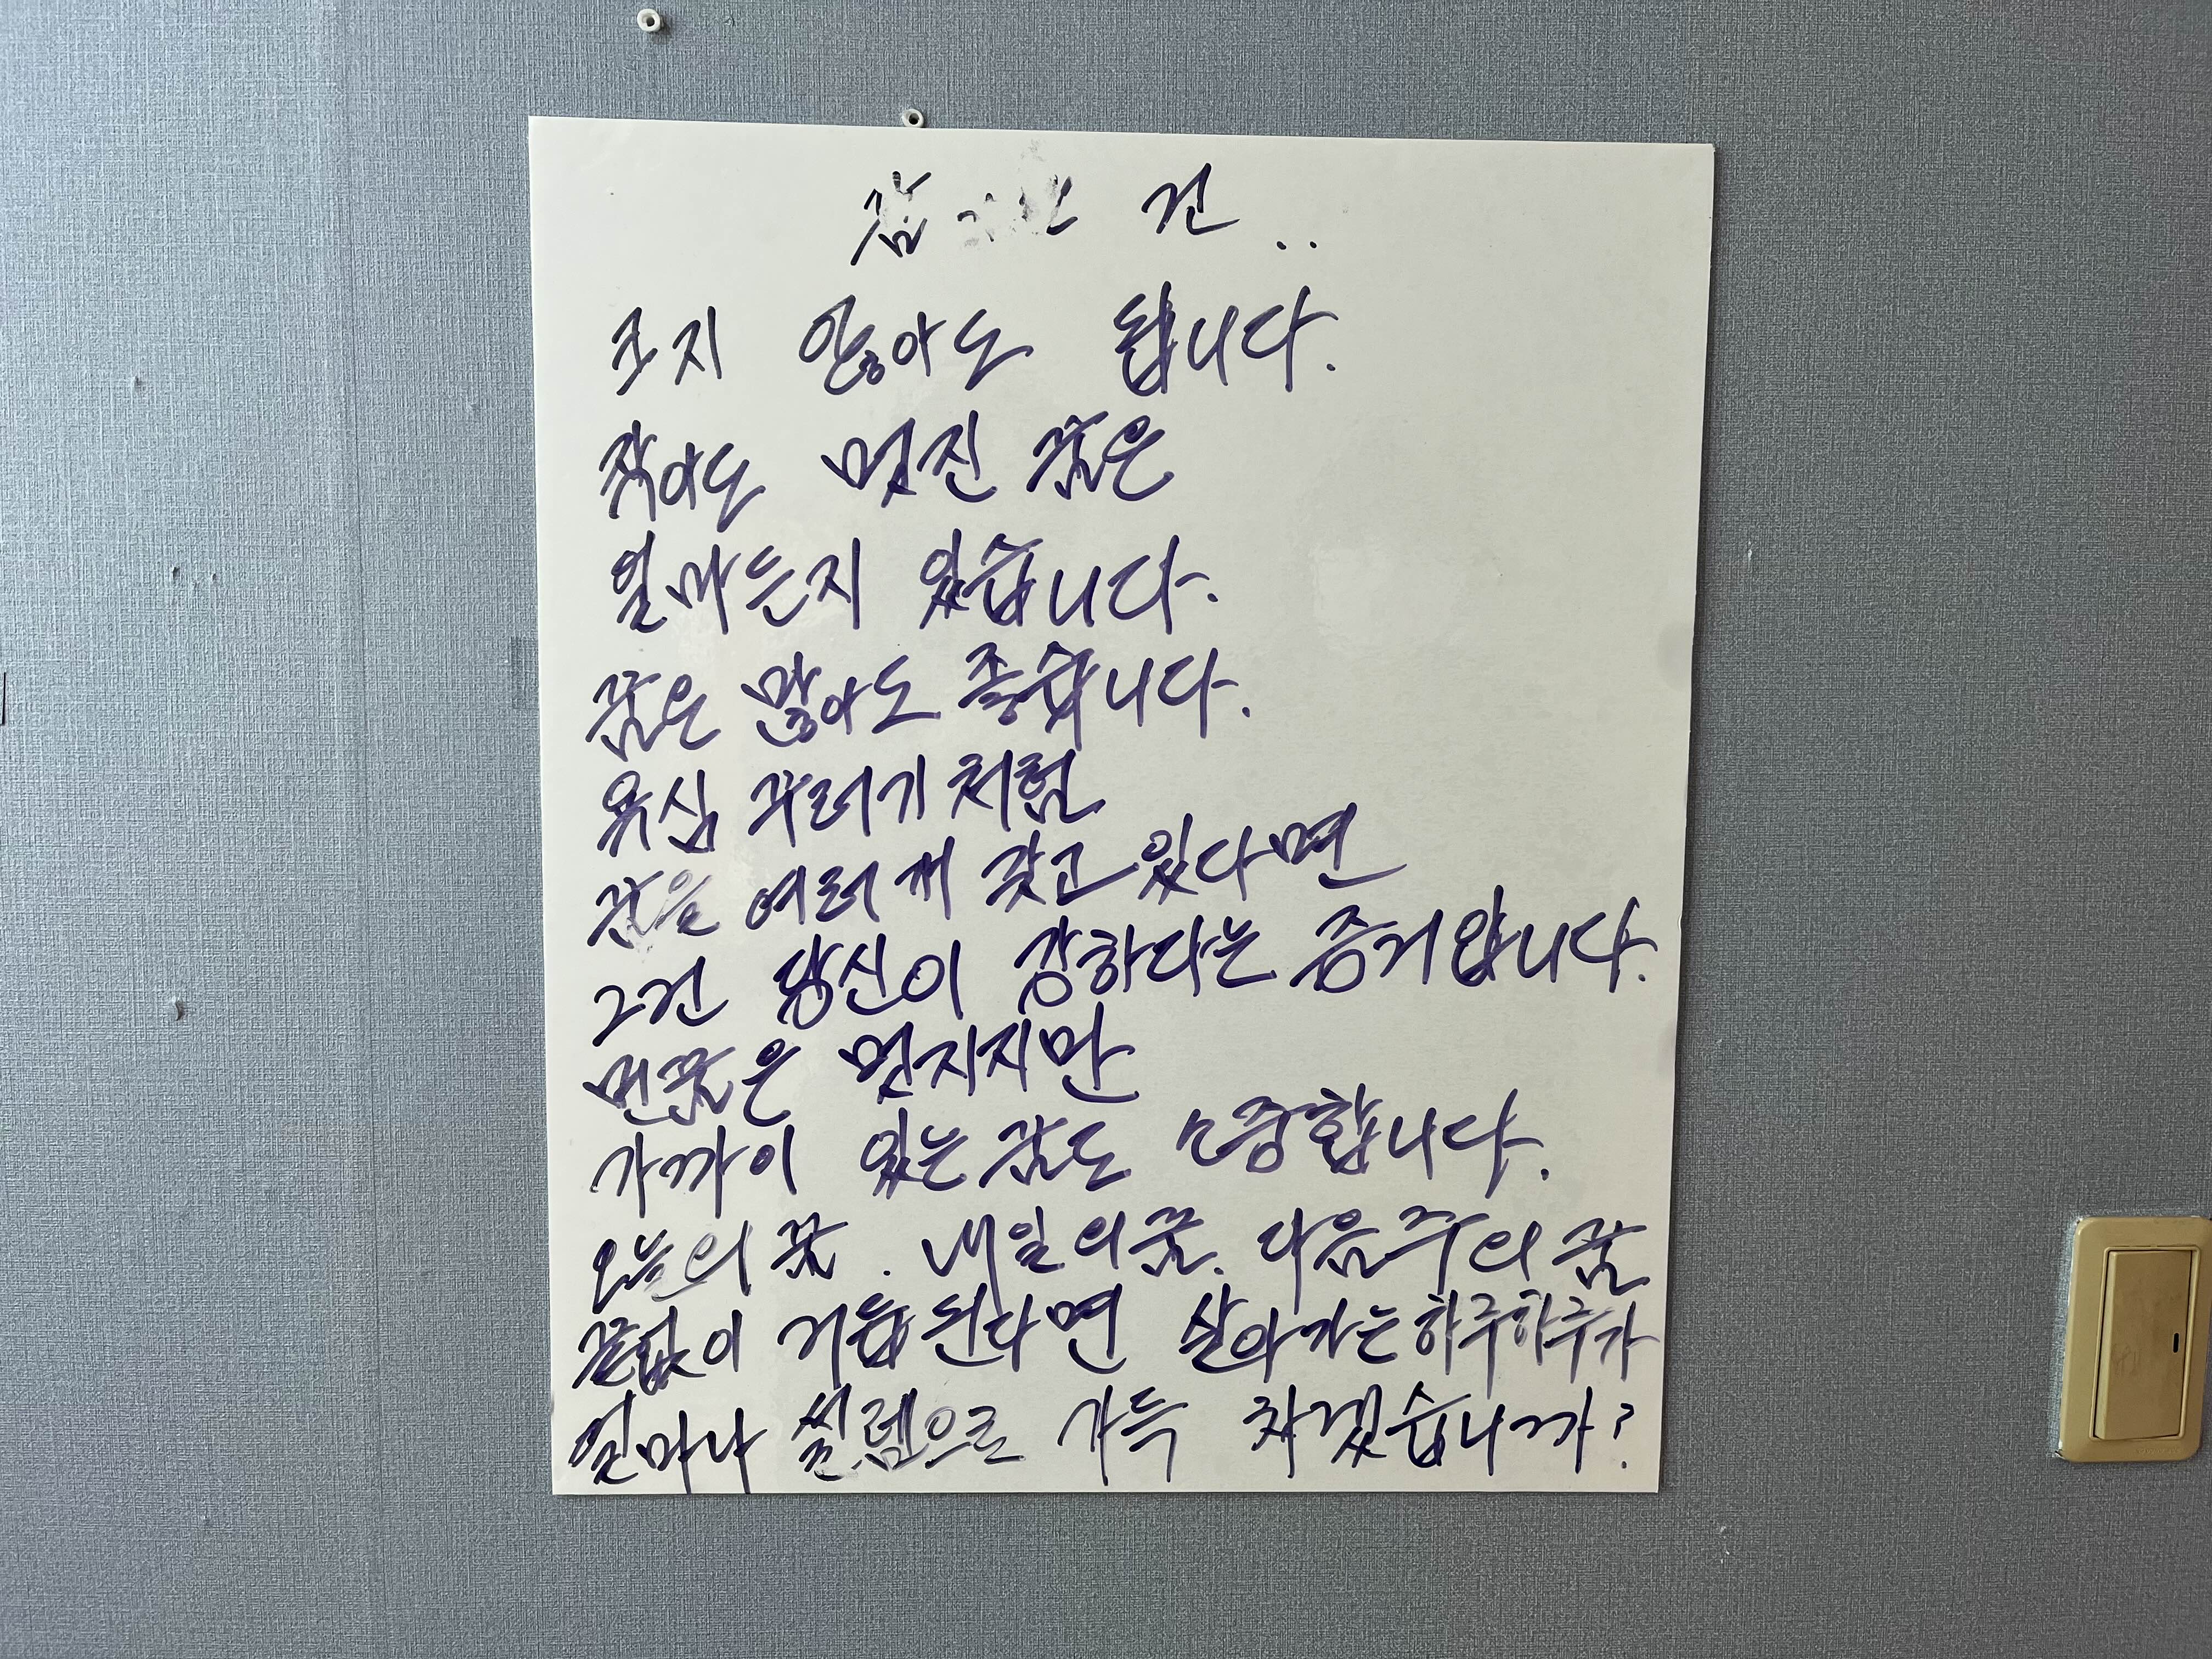 건..
크지 않아도 됩니다.
작아도 멋진 꿈은
얼마든지 있습니다.
꿈은 많아도 좋습니다.
욕심 꾸러기 처럼
꿈을 여러 개 갖고 있다면
그건 당신이 강하다는 증거입니다.
먼꿈은 멋지지만
가까이 있는 꿈도 소중합니다.
오늘의 꿈. 내일의 꿈. 다음주의 꿈
끝없이 거듭된다면 살아가는 하루하루가
얼마나 설렘으로 가득 차겠습니까?